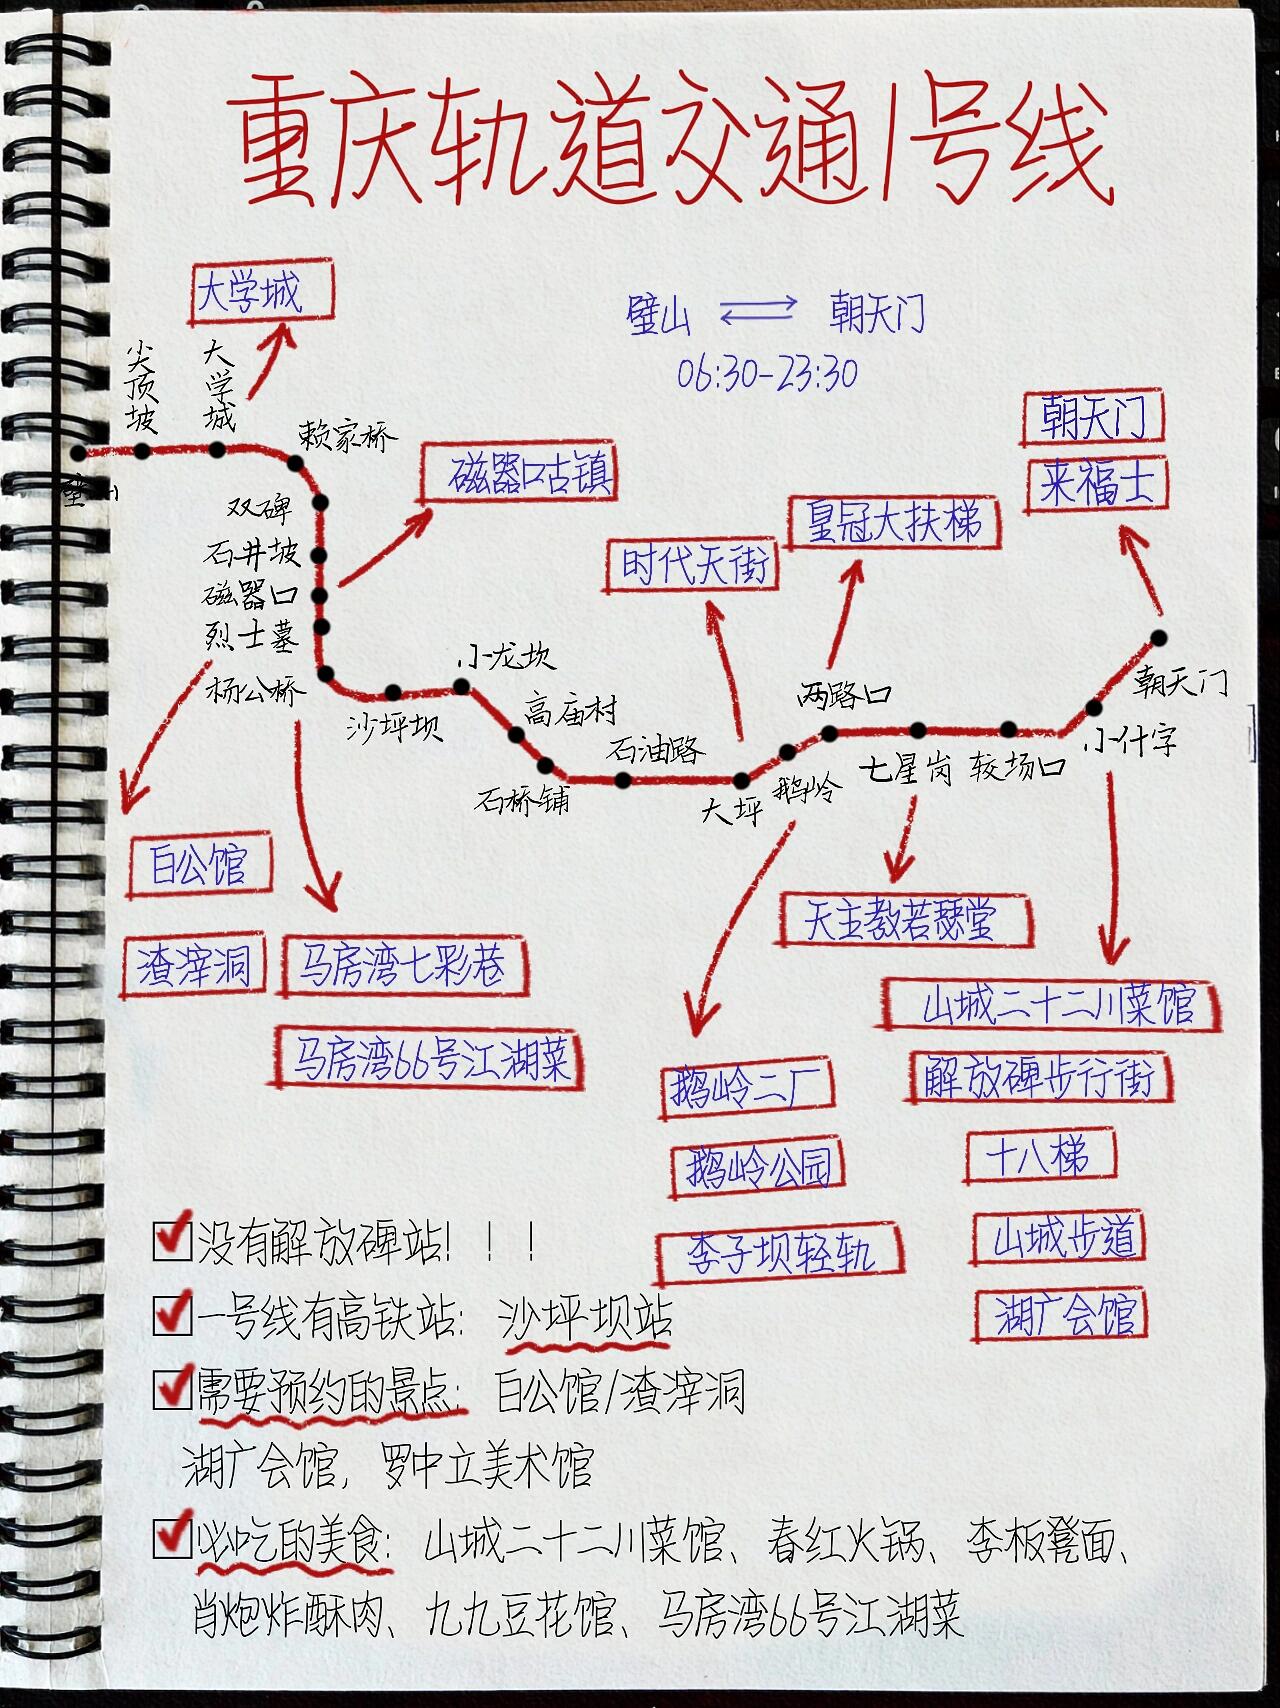 重庆轨道交通1号线
大学城
璧山 朝天门
06:30-23:30
尖顶坡
大学城
朝天门
来福士
赖家桥
磁器口古镇
璧山
双碑
石井坡
磁器口
烈士墓
杨公桥
时代天街
皇冠大扶梯
小龙坎
沙坪坝
高庙村
石油路
石桥铺
大坪
鹅岭
两路口
七星岗
较场口
小什字
朝天门
白公馆
渣滓洞
马房湾七彩巷
马房湾66号江湖菜
天主教若瑟堂
山城二十二川菜馆
解放碑步行街
十八梯
山城步道
湖广会馆
鹅岭二厂
鹅岭公园
李子坝轻轨
没有解放碑站！！！
一号线有高铁站：沙坪坝站
需要预约的景点：白公馆/渣滓洞
湖广会馆，罗中立美术馆
必吃的美食：山城二十二川菜馆、春红火锅、李板凳面、
肖炮炸酥肉、九九豆花馆、马房湾66号江湖菜